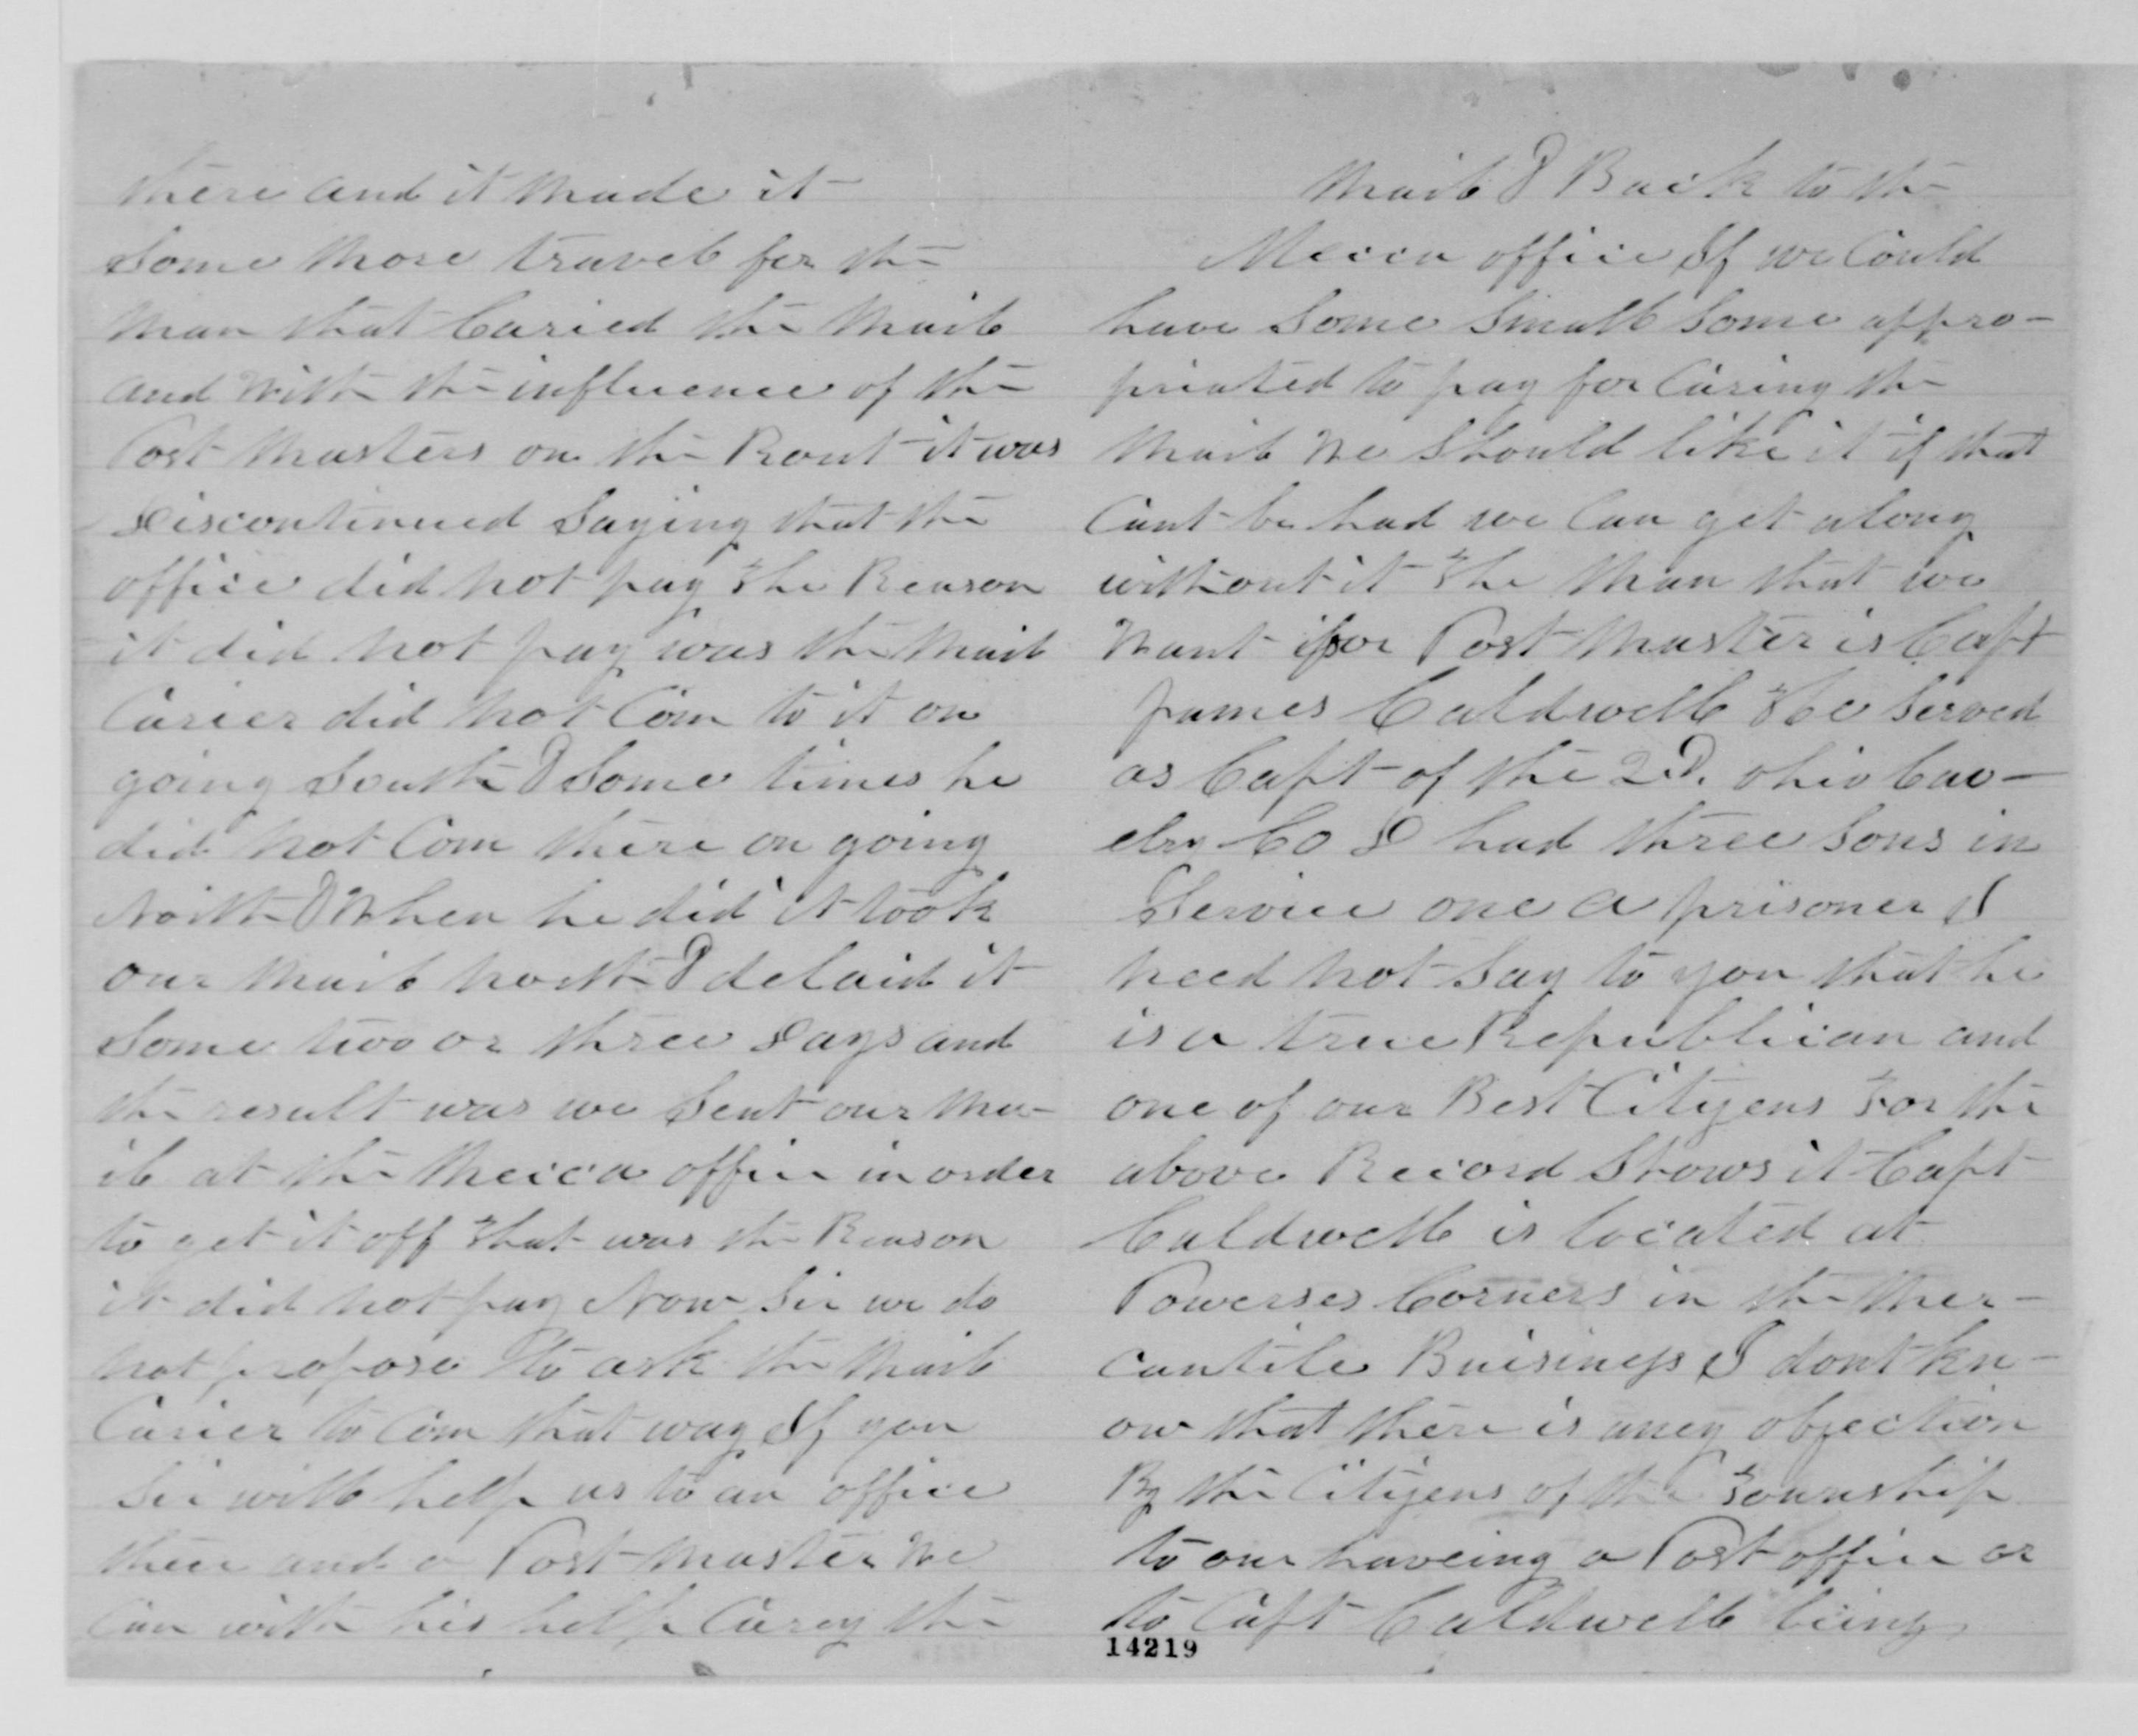 there and it made it
Some more travel for the
man that Caried the Mail
and With the influence of the
Post Masters on the Rout it was
Discontinued Saying that the
office did not pay The Reason
it did not pay was the Mail
Carier did not Com to it on
going South & Some times he
did not Com there on going
North & When he did it took
our Mail North & delaid it
Some two or three Days and
the result was we Sent our Ma-
il at the Mecca office in order
to get it off That was the Reason
it did not pay Now Sir we do
not propose to ask the Mail
Carier to Com that way If you
Sir will help us to an office
there and a Post Master We
Can with his help Carey the
Mail & Back to the
Mecca office If we Could
have Some Small Some appro-
priated to pay for Caring the
Mail We Should like it if that
Cant be had we Can get along
without it The Man that we
Want for Post Master is Capt
James Caldwell He Served
as Capt of the 2D. Ohio Cav-
elry Co D had three Sons in
Service one a prisoner I
need not Say to you that he
is a true Republican and
one of our Best Citizens For the
above Record Shows it Capt
Caldwell is located at
Powerses Corners in the Mer-
cantile Buisiness I dont kn-
ow that there is aney objection
By the Citizens of the Township
to our haveing a Post office or
to Capt Caldwell being
14219